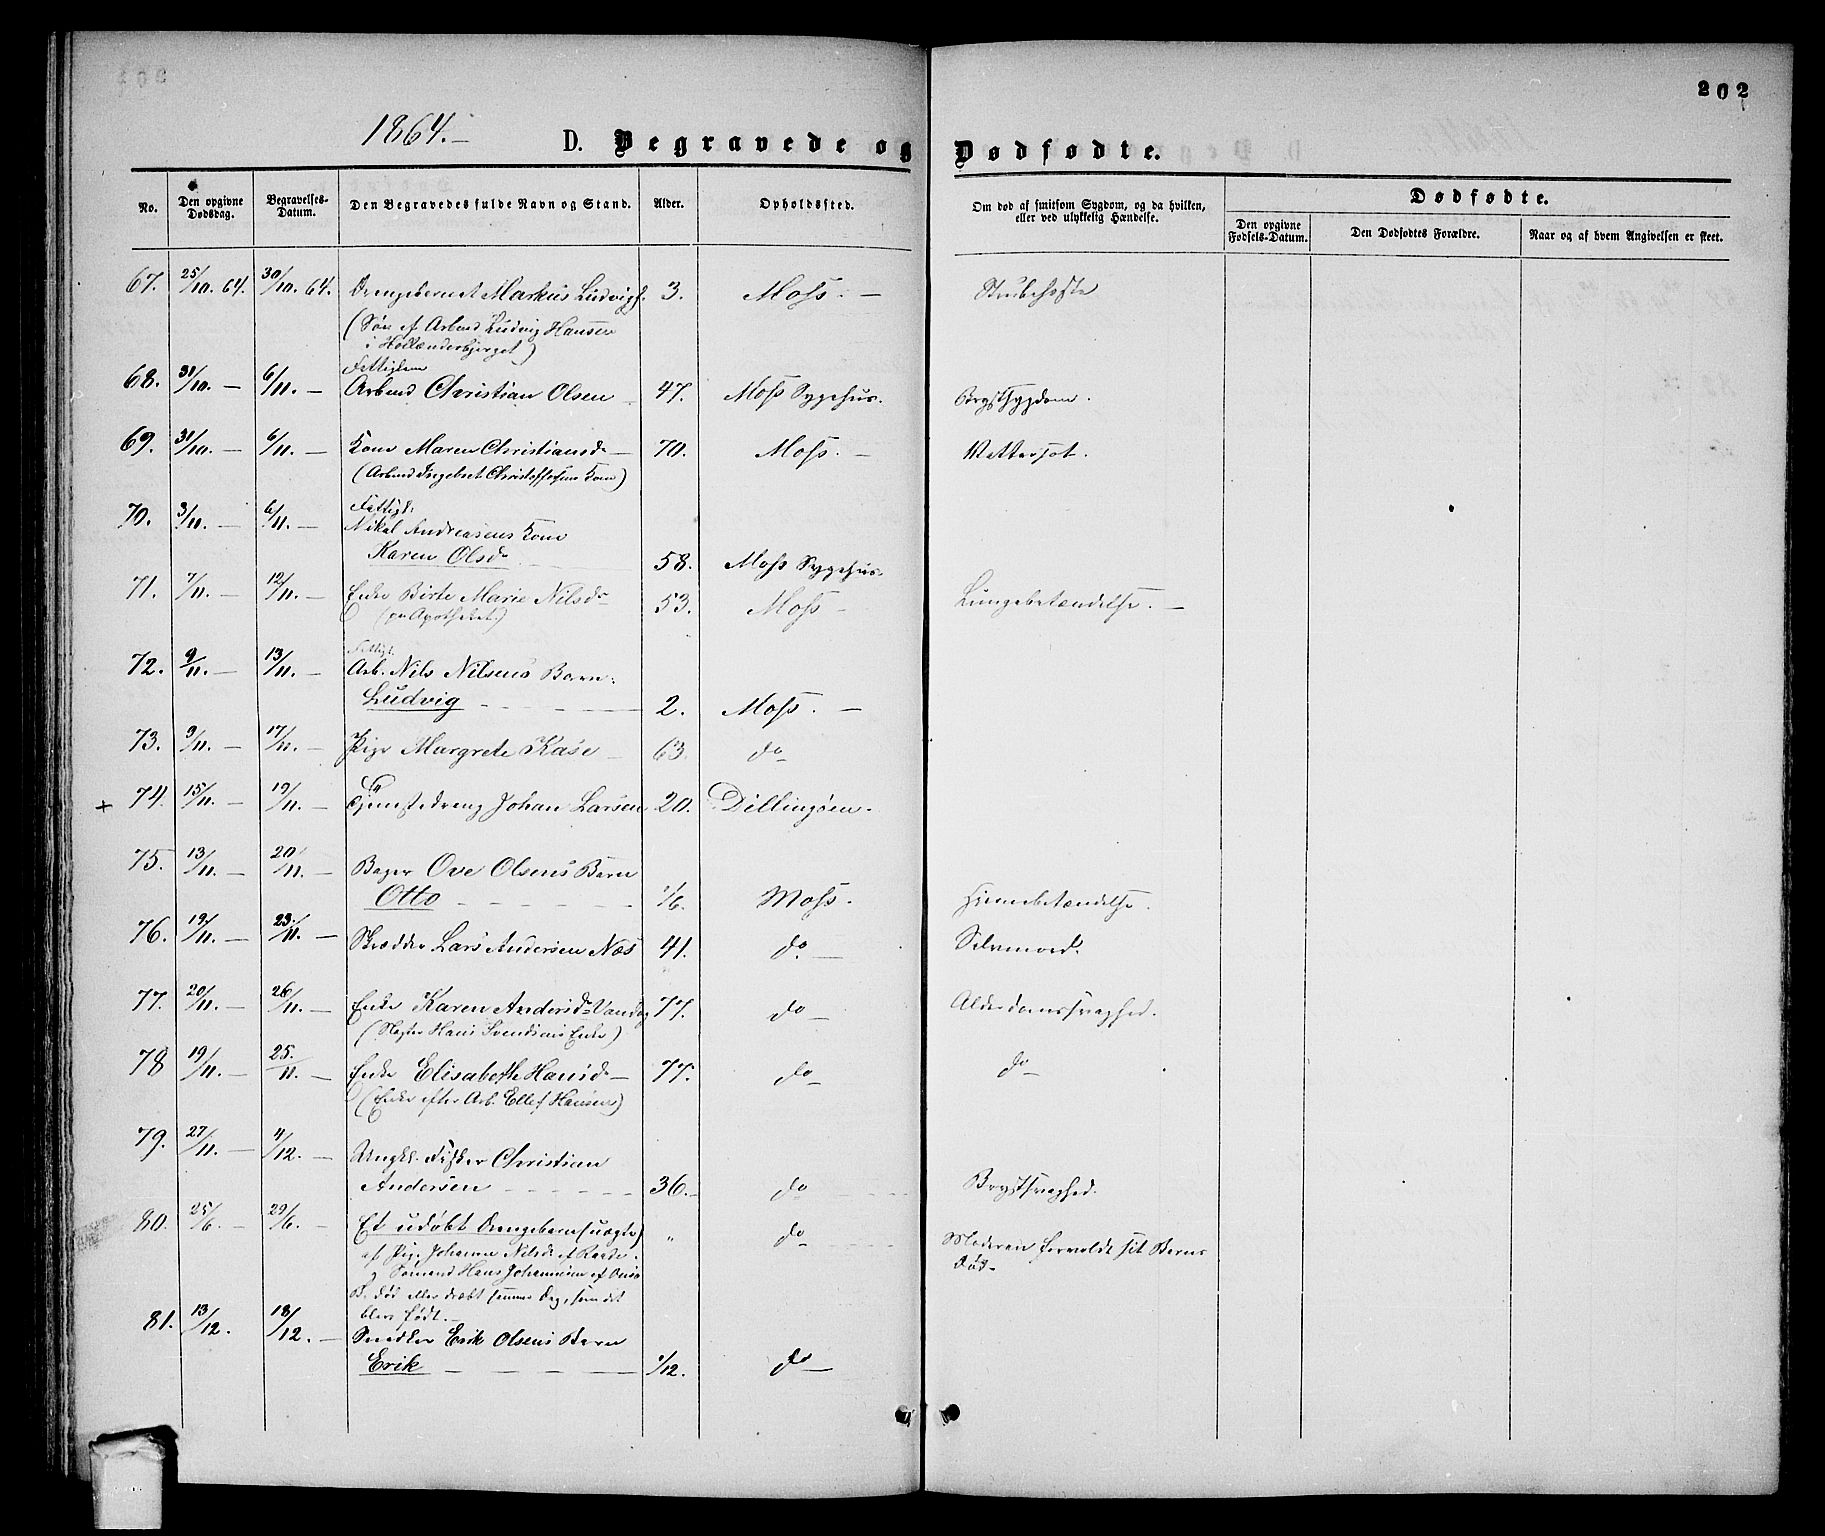 202
1864.-
D. Begravede og Dødfødte.
No.
Den opgivne Dødsdag.
Begravelses-Datum.
Den Begravedes fulde Navn og Stand.
Alder.
Opholdssted.
Om død af smitsom Sygdom, og da hvilken, eller ved ulykkelig Hændelse.
Dødfødte.
Den opgivne Fødsels-Datum.
Den Dødfødtes Forældre.
Naar og af hvem Angivelsen er skeet.
67. 25/10. 64. 30/10. 64. Drengebarnet Markus Ludvigs. 3. Moss. — Strubehoste
(Søn af Arbmd Ludvig Hansen
i Hollænderbjerget)
Fattiglem
68. 31/10. — 6/11. — Arbmd Christian Olsen 47. Moss Sygehus. Brystsygdom.
69. 31/10. — 6/11. — Kone Maren Christiansd. — 70. Moss. — Vattersot.
(Arbmd Ingebret Christoffersens Kone)
Fattigl.
70. 3/11. — 6/11. — Nikal Andreasens Kone
Karen Olsd. 58. Moss Sygehus.
71. 7/11. — 12/11. — Enke Birte Marie Nilsd. 53. Moss — Lungebetændelse. —
(paa Apotheket.)
Fattigl.
72. 9/11. — 13/11. — Arb. Nils Nilsens Barn.
Ludvig — — — 2. Moss. —
73. 9/11. — 17/11. — Pige Margrete Kase — 63. do
+ 74. 15/11. — 19/11. — Tjenestedreng Johan Larsen 20. Dillingøen.
75. 13/11. — 20/11. — Bager Ove Olsens Barn
Otto — — — 1/6. Moss. Hjernebetændelse.
76. 19/11. — 23/11. — Skrædder Lars Andersen Næs 41. do. — Selvmord.
77. 20/11. — 26/11. — Enke Karen Andersd. 77. do — Alderdomssvaghed.
(Slagter Hans Svendsens Enke)
78 19/11. — 25/11. — Enke Elisabethe Hansd. — 77. do do
(Enke efter Arb. Ellef Hansen)
79. 27/11. — 4/12. — Ungk. Fisker Christian
Andersen — — — 36. do Brystsvaghed.
80. 25/6. — 29/6. — Et udøbt Drengebarn (uægte) " do Moderen forvoldt sit Barns
Død.
af Pige Johanne Nilsd. af Raade
og Sømand Hans Johannesen af
B. død eller dræbt samme Dag, som det
blev født. —
81. 13/12. 18/12. — Snedker Erik Olsens Barn
Erik — — — 1/12. do —